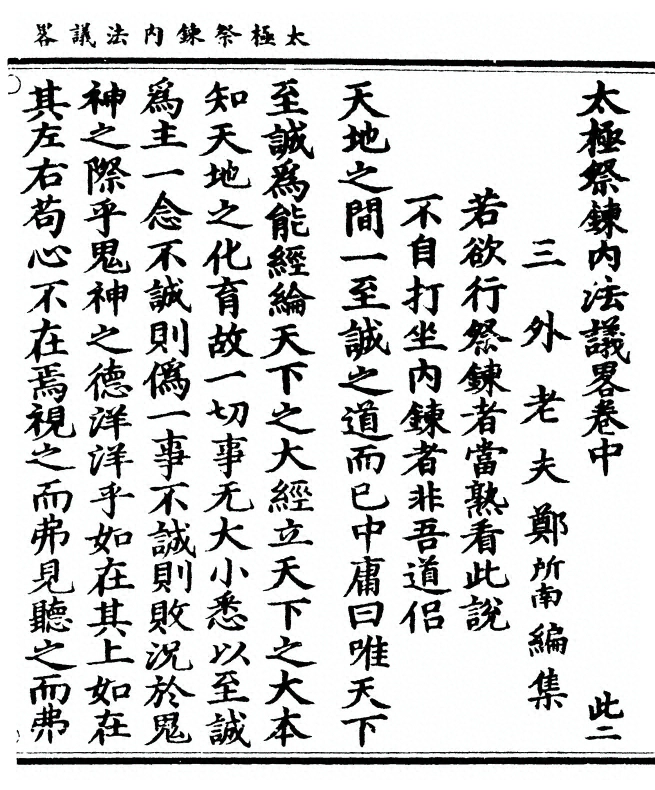 太極祭鍊内法議畧
太極祭鍊内法議畧卷中
三外老夫鄭所南編集 此二
若欲行祭鍊者當熟看此說
不自打坐内鍊者非吾道侣
天地之間一至誠之道而已中庸曰唯天下
至誠為能經綸天下之大經立天下之大本
知天地之化育故一切事无大小悉以至誠
為主一念不誠則僞一事不誠則敗況於鬼
神之際乎鬼神之德洋洋乎如在其上如在
其左右苟心不在焉視之而弗見聽之而弗